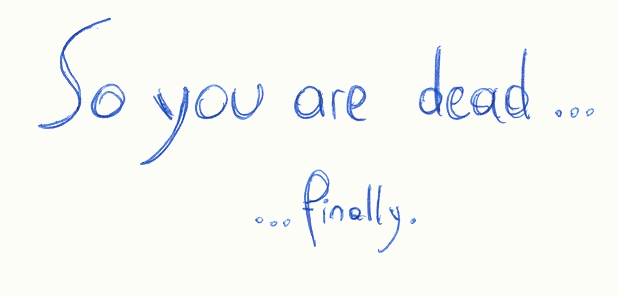 So you are dead...
...finally.